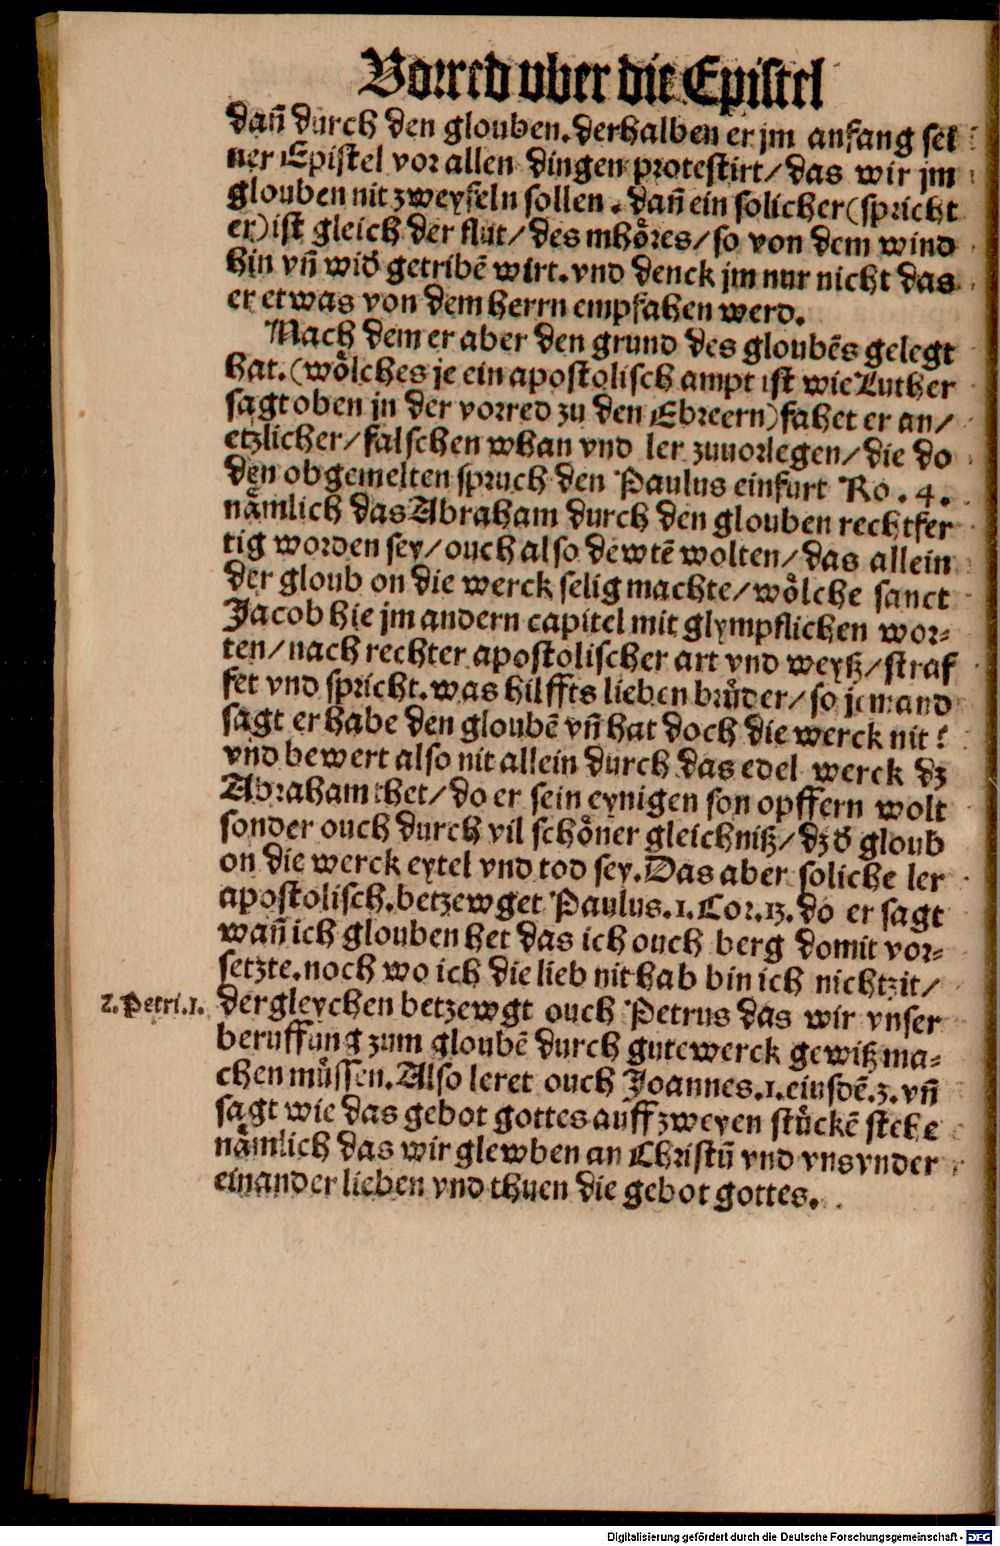 Vorred vber die Epistel
dañ durch den glouben. derhalben er jm anfang sei
ner Epistel vor allen dingen protestirt/ das wir jm
glouben nit zweyfeln sollen. dañ ein solicher (spricht
er) ist gleich der flůt/ des mhöres/ so von dem wind
hin vñ wid̄ getribē wirt. vnd denck jm nur nicht das
er etwas von dem herrn empfahen werd.
Nach dem er aber den grund des gloubēs gelegt
hat. (wölches je ein apostolisch ampt ist wie Luther
sagt oben jn der vorred zu den Ebreern) fahet er an/
etzlicher/ falschen whan vnd ler zuuorlegen/ die do
den obgemelten spruch den Paulus einfurt Ro. 4.
nämlich das Abraham durch den glouben rechtfer
tig worden sey/ ouch also dewtē wolten/ das allein
der gloub on die werck selig machte/ wölche sanct
Jacob hie jm andern capitel mit glympflichen wor⸗
ten/ nach rechter apostolischer art vnd weyß/ straf
fet vnd spricht. was hilffts lieben brůder/ so jemand
sagt er habe den gloubē vñ hat doch die werck nit?
vnd bewert also nit allein durch das edel werck dz
Abraham thet/ do er sein eynigen son opffern wolt
sonder ouch durch vil schöner gleichniß/ dz d̄ gloub
on die werck eytel vnd tod sey. Das aber soliche ler
apostolisch. betzewget Paulus. 1. Cor. 13. do er sagt
wañ ich glouben het das ich ouch berg domit vor⸗
setzte. noch wo ich die lieb nit hab bin ich nichtzit/
2. Petri. 1. dergleychen betzewgt ouch Petrus das wir vnser
beruffung zum gloubē durch gute werck gewiß ma⸗
chen müssen. Also leret ouch Joannes. 1. eiusdē. 3. vñ
sagt wie das gebot gottes auff zweyen stückē stehe
nämlich das wir glewben an Christū vnd vns vnder
einander lieben vnd thuen die gebot gottes.
Digitalisierung gefördert durch die Deutsche Forschungsgemeinschaft - DFG